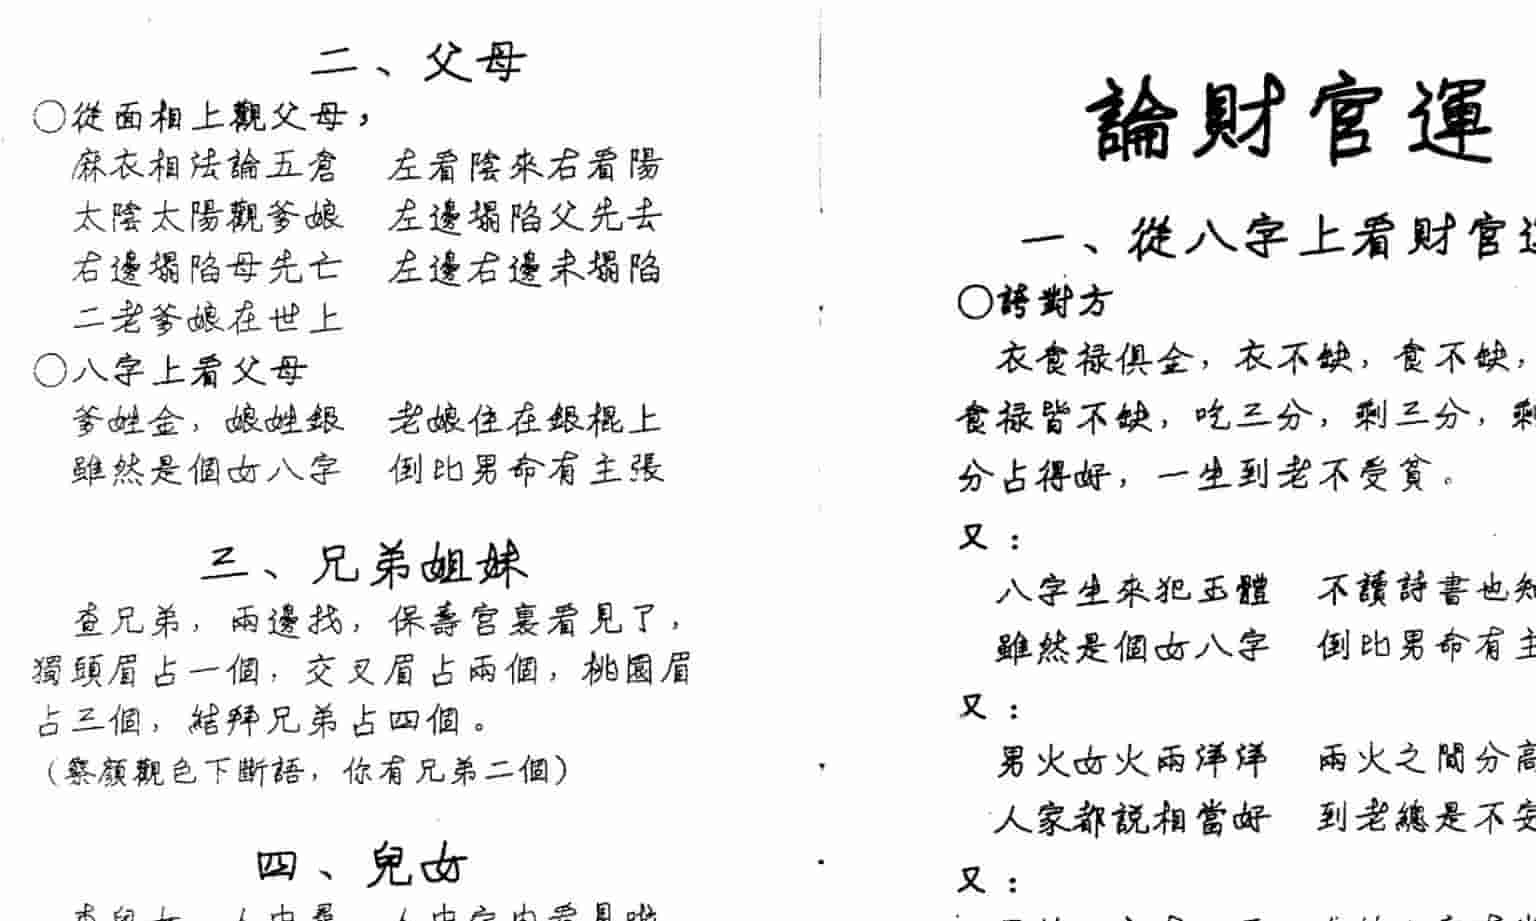 二、父母
○從面相上觀父母，
麻衣相法論五倉　左看陰來右看陽
太陰太陽觀爹娘　左邊塌陷父先去
右邊塌陷母先亡　左邊右邊未塌陷
二老爹娘在世上
○八字上看父母
爹姓金，娘姓銀　老娘住在銀棍上
雖然是個女八字　倒比男命有主張
三、兄弟姐妹
查兄弟，兩邊找，保壽宮裏看見了，
獨頭眉占一個，交叉眉占兩個，桃園眉
占三個，結拜兄弟占四個。
（察顏觀色下斷語，你有兄弟二個）
四、兒女
論財官運
一、從八字上看財官運
○誇對方
衣食祿俱全，衣不缺，食不缺，
食祿皆不缺，吃三分，剩三分，剩
分占得好，一生到老不受貧。
又：
八字生來犯五體　不讀詩書也知
雖然是個女八字　倒比男命有主
又：
男火女火兩洋洋　兩火之間分高
人家都說相當好　到老總是不安
又：